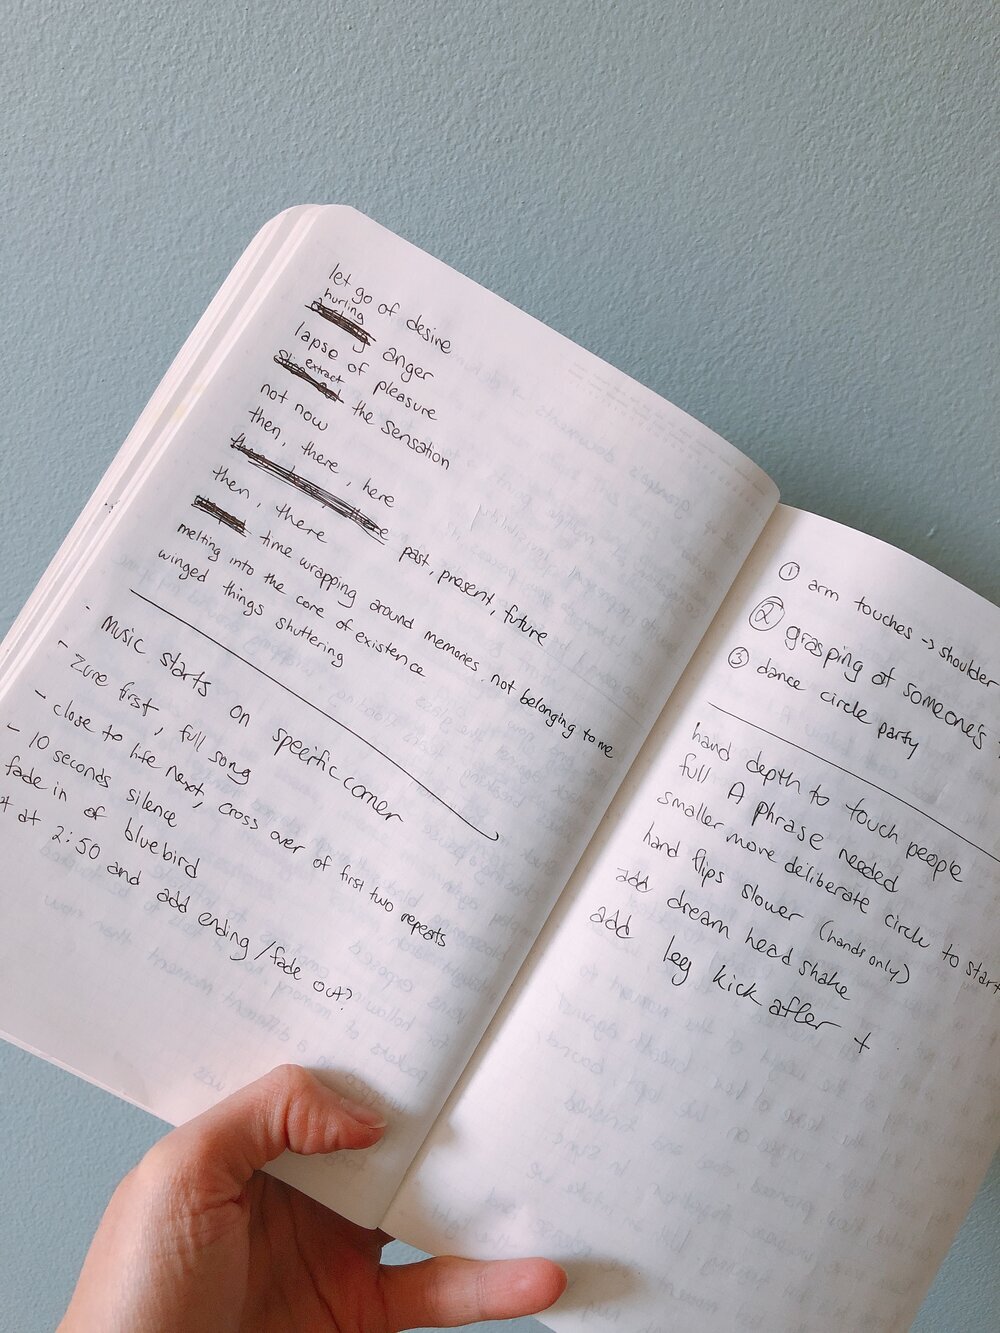 let go of desire
hurling
anger
lapse of pleasure
extract
the sensation
not now
then, there, here
then, there past, present, future
time wrapping around memories not belonging to me
melting into the core of existence
winged things shuttering
Music starts on specific corner
- Zure first, full song
- close to life next, cross over of first two repeats
- 10 seconds silence
fade in of bluebird
+ at 2:50 and add ending / fade out?
① arm touches -> shoulder
② grasping at someone's
③ dance circle party
hand depth to touch people
full A phrase needed
smaller more deliberate circle to start
hand flips slower (hands only)
add dream head shake
add leg kick after +